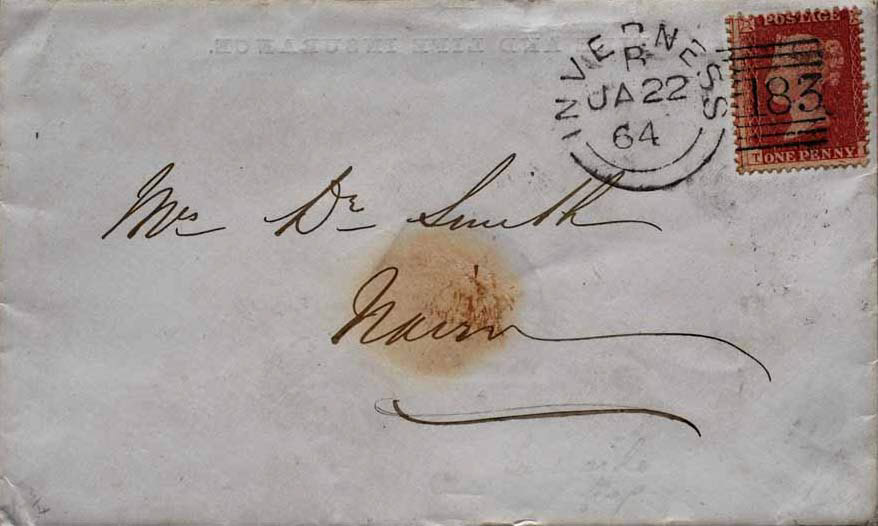 AND LIFE INSURANCE.
INVERNESS
B
JA 22
64
POSTAGE
183
T ONE PENNY I
Mrs Dr Smith
Nairn